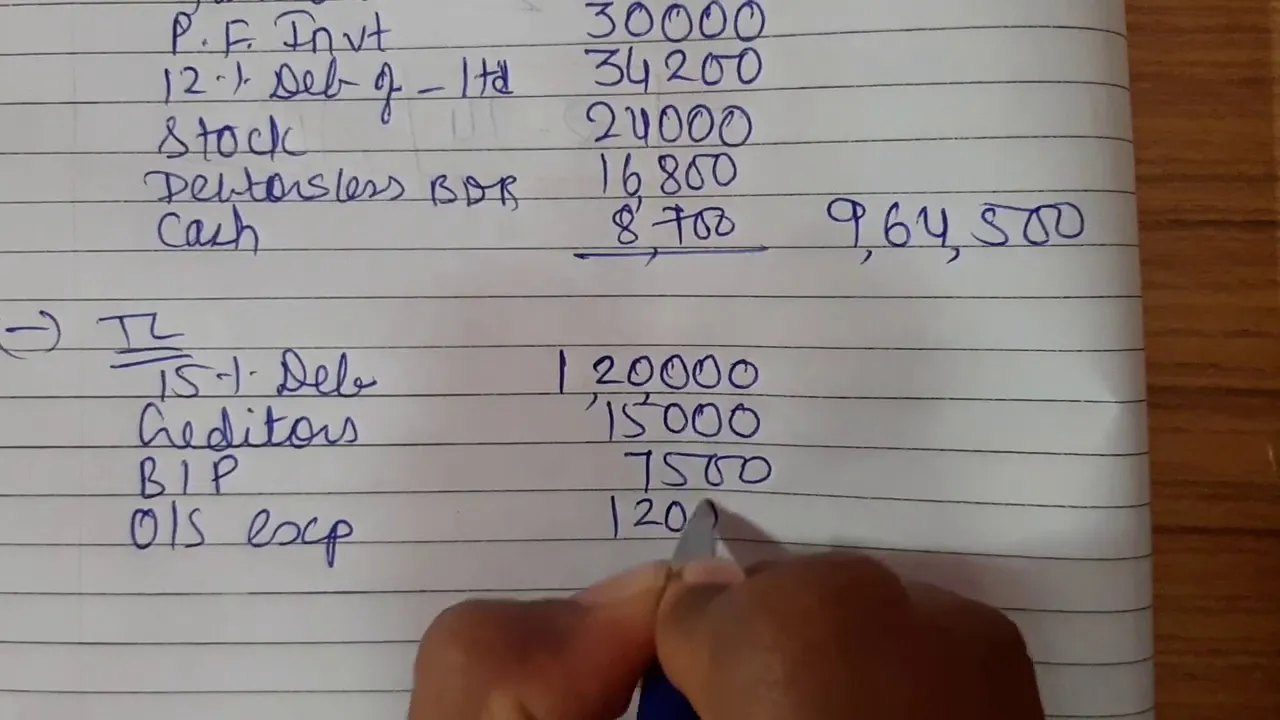 P.F. Invt 30000
12·/· Deb of - ltd 34200
Stock 24000
Debtors less BDR 16,800
Cash 8,700 9,64,500
(-) TL
15·/· Deb 1,20,000
Creditors 15000
B/P 7500
O/S exp 120